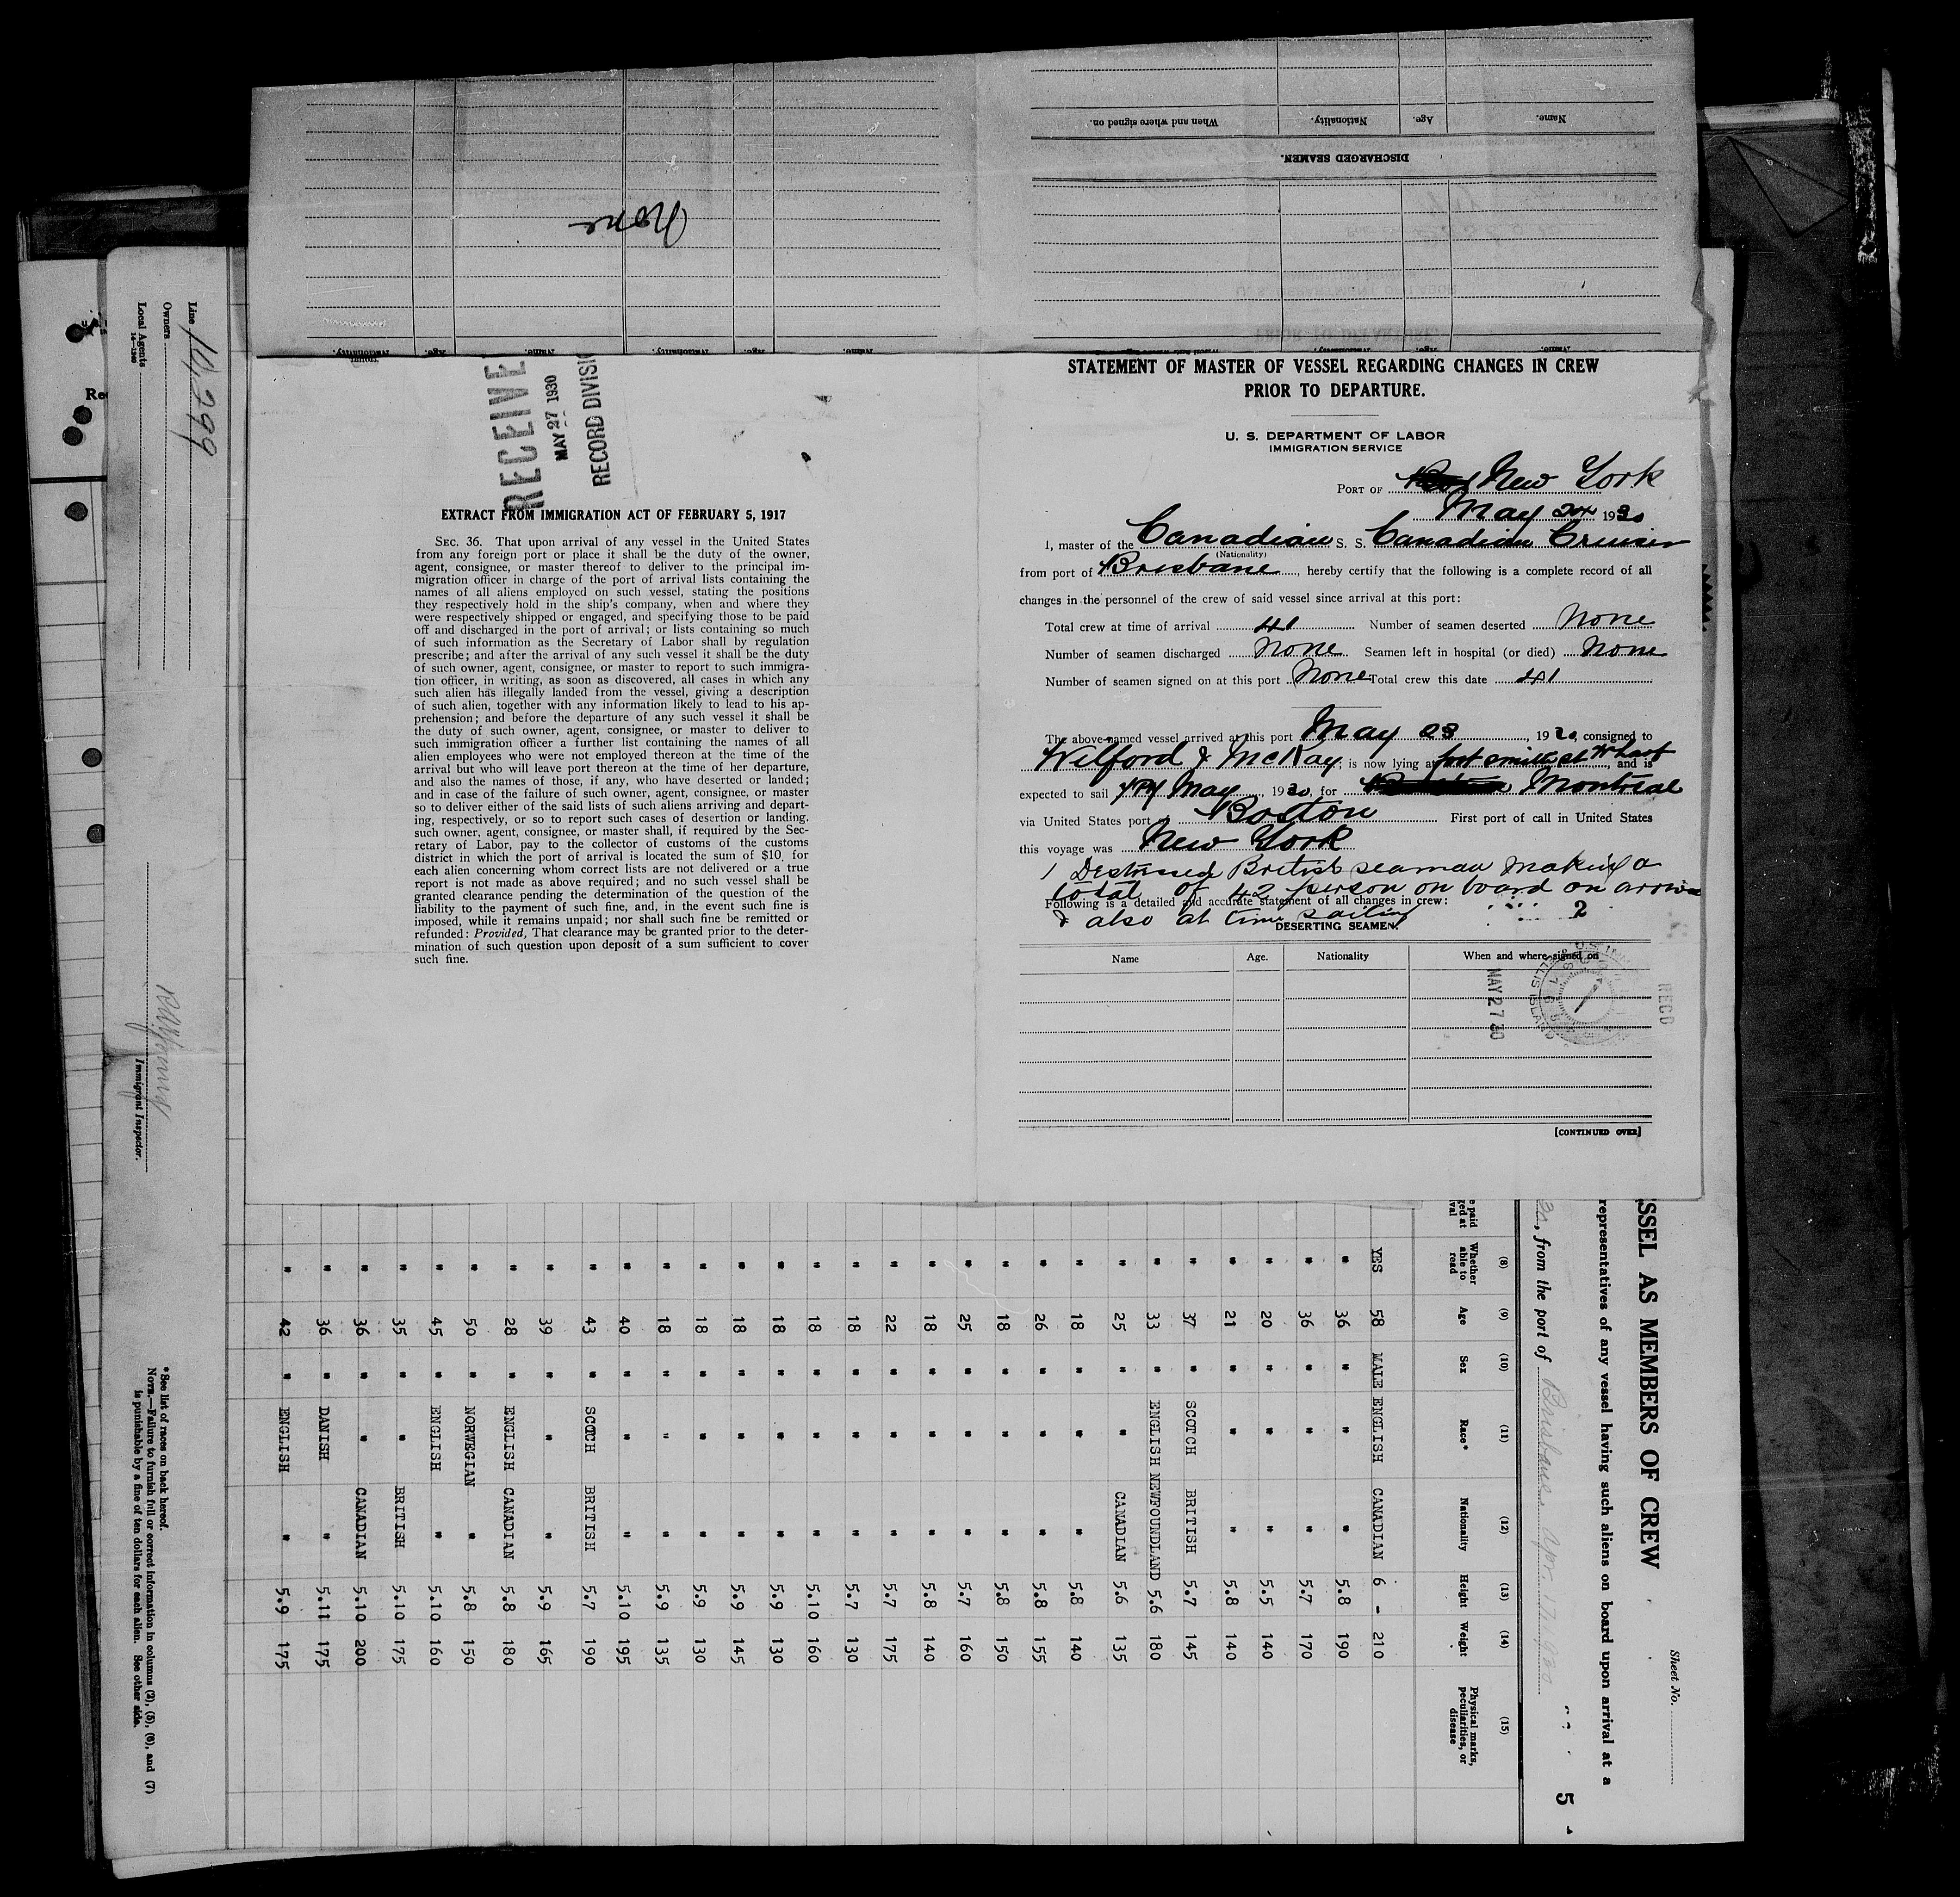 Name.
Age.
Nationality.
When and where signed on.
DISCHARGED SEAMEN.
None
Name.
Age.
Nationality.
Name.
Age.
RECEIVE
MAY 27 1930
RECORD DIVISI
EXTRACT FROM IMMIGRATION ACT OF FEBRUARY 5, 1917
SEC. 36. That upon arrival of any vessel in the United States
from any foreign port or place it shall be the duty of the owner,
agent, consignee, or master thereof to deliver to the principal im-
migration officer in charge of the port of arrival lists containing the
names of all aliens employed on such vessel, stating the positions
they respectively hold in the ship's company, when and where they
were respectively shipped or engaged, and specifying those to be paid
off and discharged in the port of arrival; or lists containing so much
of such information as the Secretary of Labor shall by regulation
prescribe; and after the arrival of any such vessel it shall be the duty
of such owner, agent, consignee, or master to report to such immigra-
tion officer, in writing, as soon as discovered, all cases in which any
such alien has illegally landed from the vessel, giving a description
of such alien, together with any information likely to lead to his ap-
prehension; and before the departure of any such vessel it shall be
the duty of such owner, agent, consignee, or master to deliver to
such immigration officer a further list containing the names of all
alien employees who were not employed thereon at the time of the
arrival but who will leave port thereon at the time of her departure,
and also the names of those, if any, who have deserted or landed;
and in case of the failure of such owner, agent, consignee, or master
so to deliver either of the said lists of such aliens arriving and depart-
ing, respectively, or so to report such cases of desertion or landing,
such owner, agent, consignee, or master shall, if required by the Sec-
retary of Labor, pay to the collector of customs of the customs
district in which the port of arrival is located the sum of $10 for
each alien concerning whom correct lists are not delivered or a true
report is not made as above required; and no such vessel shall be
granted clearance pending the determination of the question of the
liability to the payment of such fine, and, in the event such fine is
imposed, while it remains unpaid; nor shall such fine be remitted or
refunded: Provided, That clearance may be granted prior to the deter-
mination of such question upon deposit of a sum sufficient to cover
such fine.
STATEMENT OF MASTER OF VESSEL REGARDING CHANGES IN CREW
PRIOR TO DEPARTURE.
U. S. DEPARTMENT OF LABOR
IMMIGRATION SERVICE
PORT OF New York
May 24 1930
I, master of the Canadian S. S. Canadian Cruiser
(Nationality)
from port of Brisbane, hereby certify that the following is a complete record of all
changes in the personnel of the crew of said vessel since arrival at this port:
Total crew at time of arrival 41 Number of seamen deserted None
Number of seamen discharged None Seamen left in hospital (or died) None
Number of seamen signed on at this port None Total crew this date 41
The above-named vessel arrived at this port May 23, 1930, consigned to
Wilford & McKay, is now lying at foot smith st Wharf, and is
expected to sail May, 1930, for Montreal
via United States port Boston First port of call in United States
this voyage was New York
1 Distressed British seaman making a
total of 42 person on board on arrival
Following is a detailed and accurate statement of all changes in crew:
& also at time sailing
2
DESERTING SEAMEN.
Name Age. Nationality When and where signed on
MAY 27 30
RECD
[CONTINUED OVER]
Line 14299
Owners
Local Agents
14—1240
Re
Immigrant Inspector.
*See list of races on back hereof.
NOTE.—Failure to furnish full or correct information in columns (2), (5), (6), and (7)
is punishable by a fine of ten dollars for each alien. See other side.
Sheet No.
SSEL AS MEMBERS OF CREW
representatives of any vessel having such aliens on board upon arrival at a
30, from the port of Brisbane Apr. 17 1930
5
(8) (9) (10) (11) (12) (13) (14) (15)
Whether able to read Age Sex Race* Nationality Height Weight Physical marks, peculiarities, or disease
YES 58 MALE ENGLISH CANADIAN 6 - 210
" 36 " " " 5.8 190
" 36 " " " 5.7 170
" 20 " " " 5.5 140
" 21 " " " 5.8 140
" 37 " SCOTCH BRITISH 5.7 145
" 33 " ENGLISH NEWFOUNDLAND 5.6 180
" 25 " " CANADIAN 5.6 135
" 18 " " " 5.8 140
" 26 " " " 5.8 155
" 18 " " " 5.8 150
" 25 " " " 5.7 160
" 18 " " " 5.8 140
" 22 " " " 5.7 175
" 18 " " " 5.7 130
" 18 " " " 5.10 160
" 18 " " " 5.9 130
" 18 " " " 5.9 145
" 18 " " " 5.9 130
" 18 " " " 5.9 135
" 40 " " " 5.10 195
" 43 " SCOTCH BRITISH 5.7 190
" 39 " " " 5.9 165
" 28 " ENGLISH CANADIAN 5.8 180
" 50 " NORWEGIAN " 5.8 150
" 45 " ENGLISH " 5.10 160
" 35 " " BRITISH 5.10 175
" 36 " " CANADIAN 5.10 200
" 36 " DANISH " 5.11 175
" 42 " ENGLISH " 5.9 175